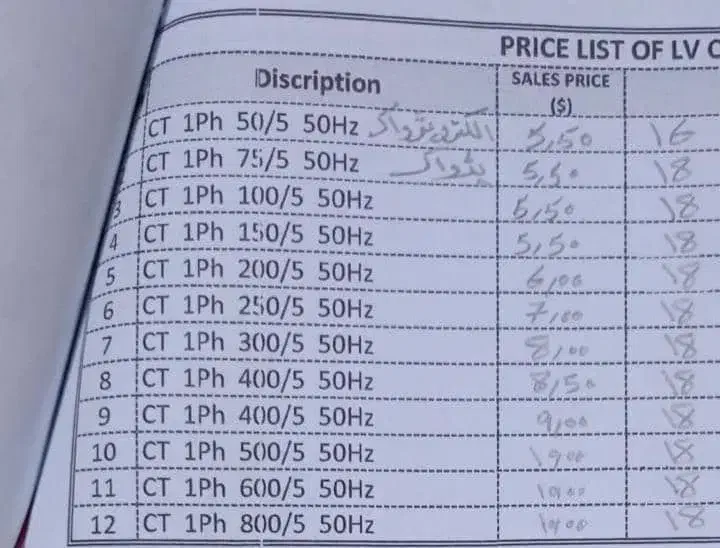 PRICE LIST OF LV C
Discription SALES PRICE
($)
CT 1Ph 50/5 50Hz 5,50 16
CT 1Ph 75/5 50Hz 5,50 18
3 CT 1Ph 100/5 50Hz 5,50 18
4 CT 1Ph 150/5 50Hz 5,50 18
5 CT 1Ph 200/5 50Hz 6,00 18
6 CT 1Ph 250/5 50Hz 7,00 18
7 CT 1Ph 300/5 50Hz 8,00 18
8 CT 1Ph 400/5 50Hz 8,50 18
9 CT 1Ph 400/5 50Hz 9,00 18
10 CT 1Ph 500/5 50Hz 18
11 CT 1Ph 600/5 50Hz 18
12 CT 1Ph 800/5 50Hz 18